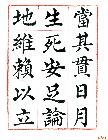 當其貫日月
生死安足論
地維賴以立